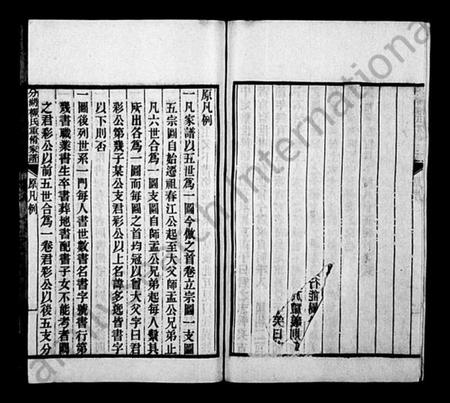 原凡例
一凡家譜以五世為一圖今倣之首卷立宗圖一支圖
五宗圖自始遷祖春江公起至大父師孟公兄弟止
凡六世合為一圖支圖自師孟公兄弟起每人繫其
所出各為一圖而每圖之首均冠以曾大父字曰君
彩公第幾子某公支君彩公以上名諱多題皆書字
以下則否
一圖後列世系一門每人書世數書名書字號書行第
幾書職業書生卒書葬地書配書子女不能考者闕
之君彩公以前五世合為一卷君彩公以後五支分
原凡例